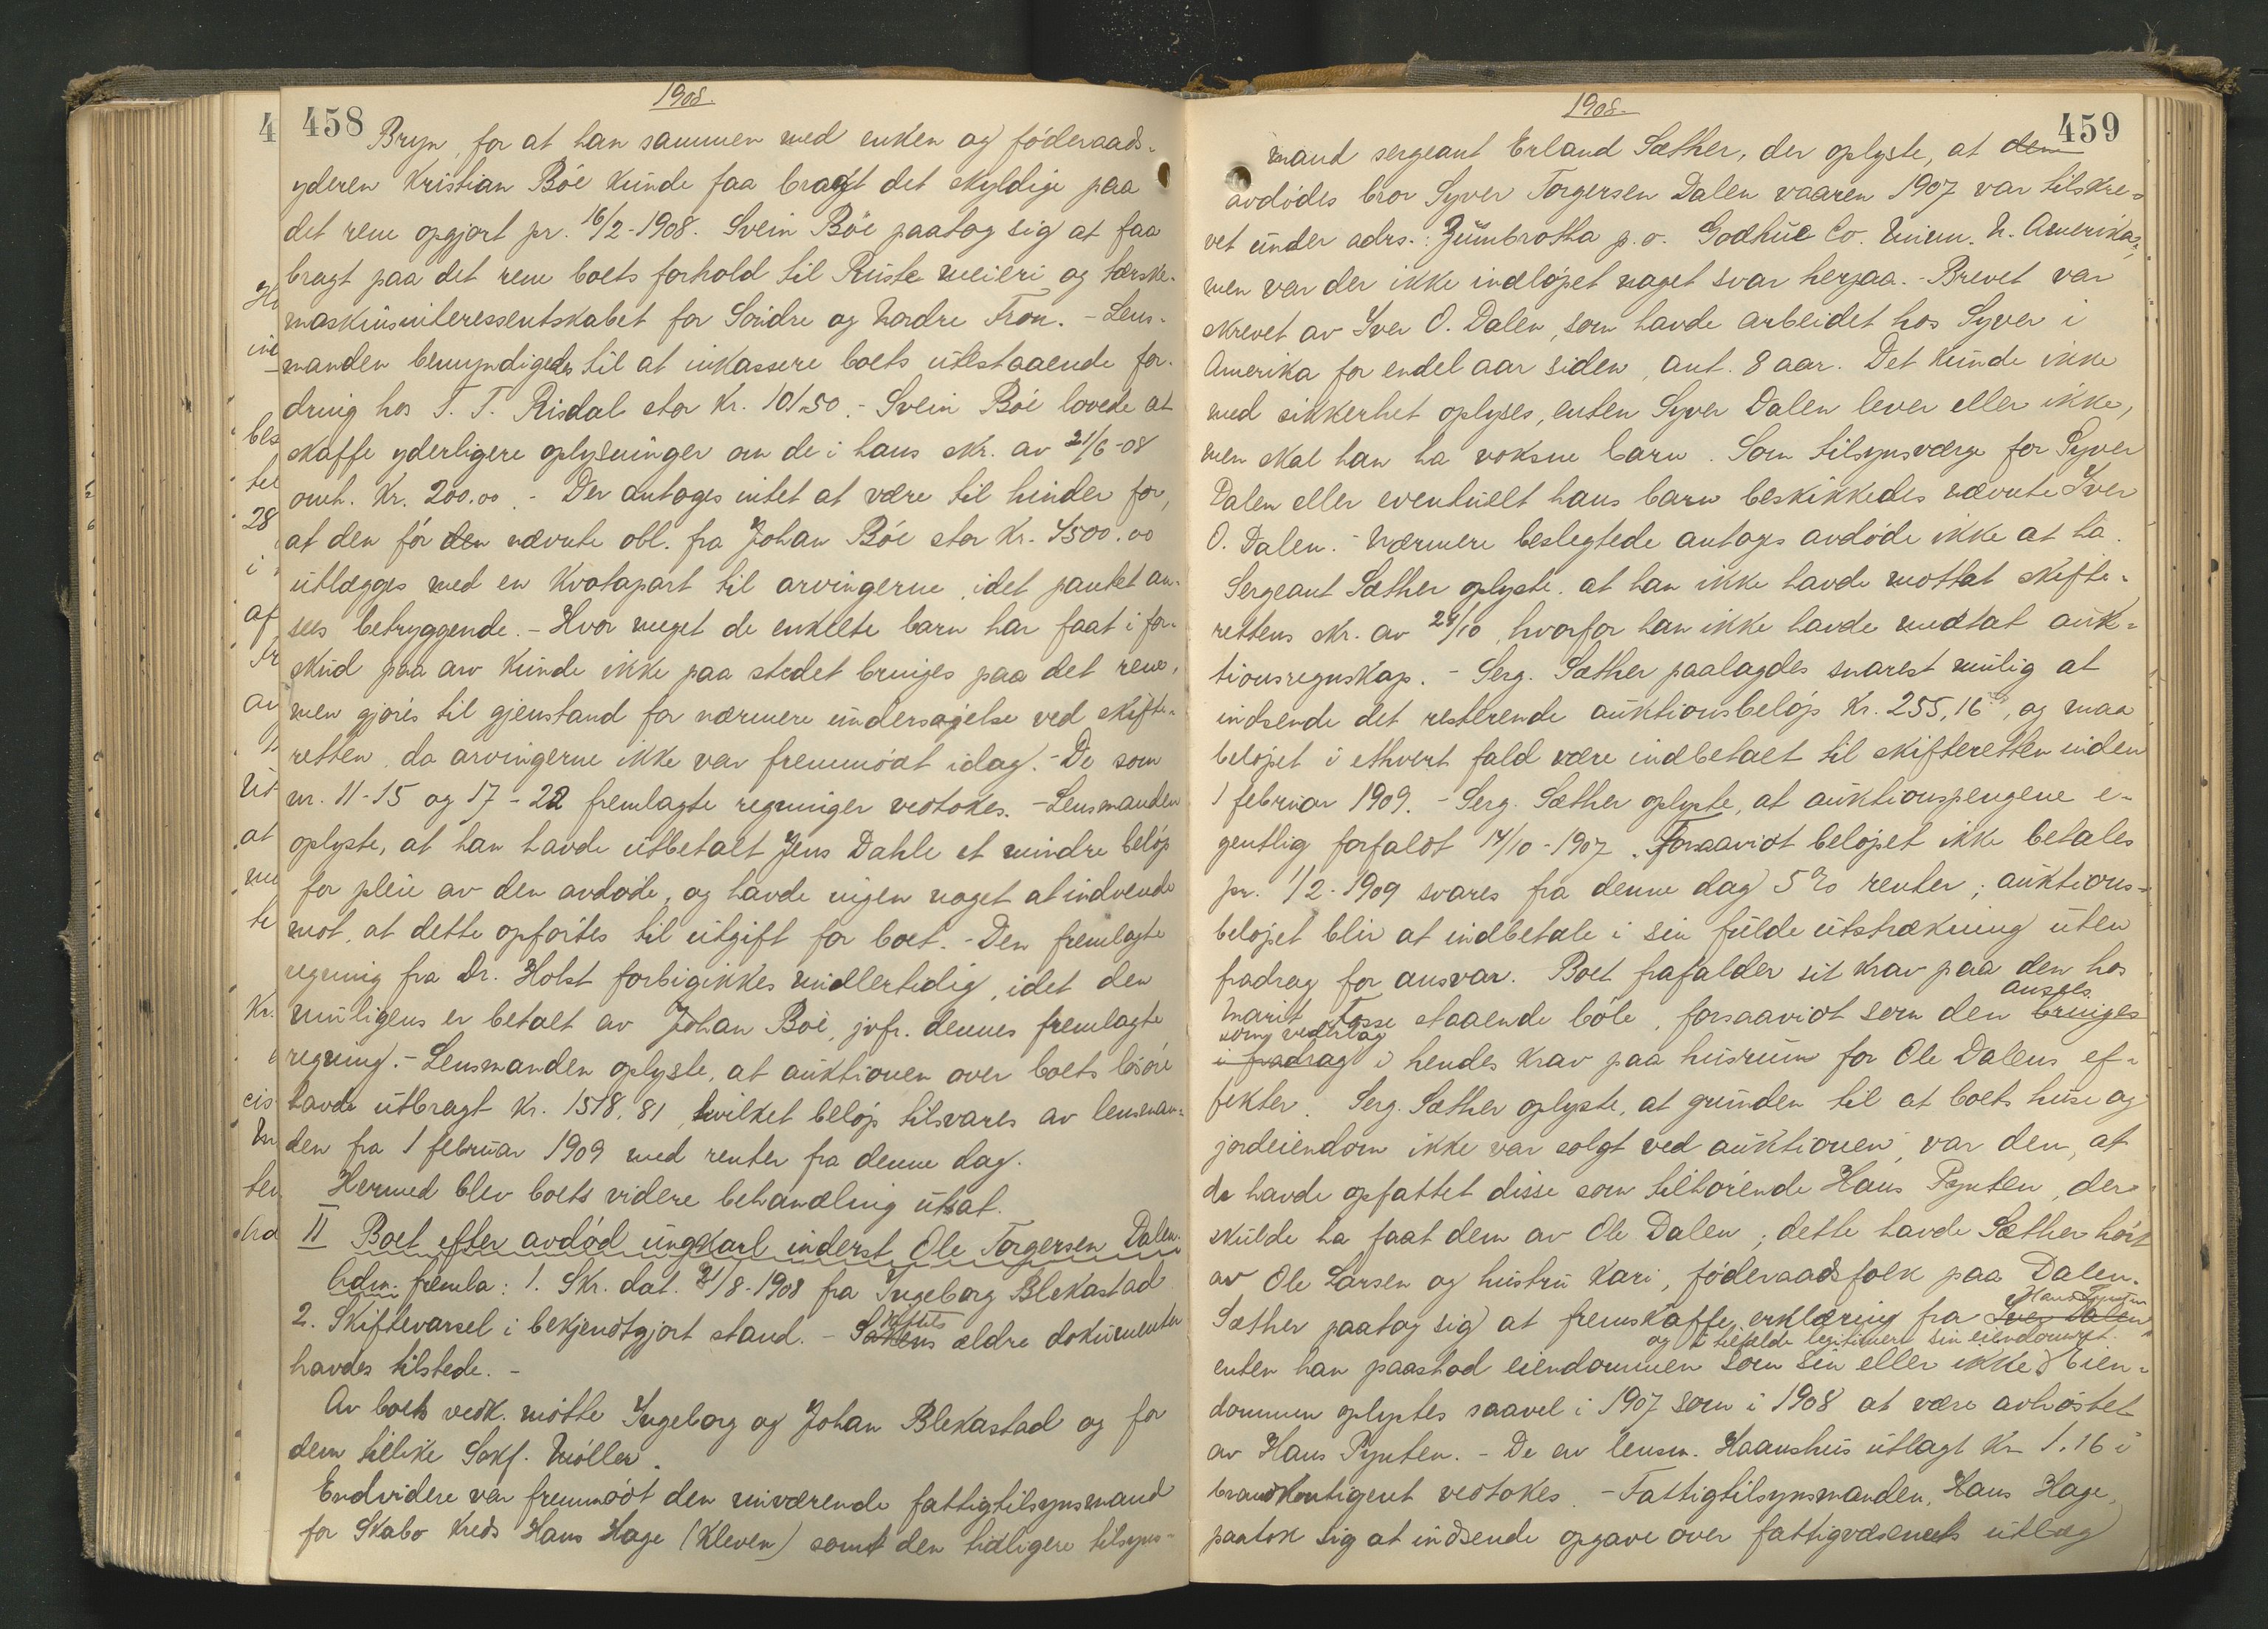 458
1908.
Bryn, for at han sammen med enken og föderaads-
yderen Kristian Böe kunde faa bragt det skyldige paa
det rene opgjort pr. 16/2-1908. Svein Böe paatog sig at faa
bragt paa det rene boets forhold til Ruste meieri og tærske-
maskininteressentskabet for Söndre og Nordre Fron. - Lens-
manden bemyndigedes til at inkassere boets utestaaende for-
dring hos T. T. Risdal stor Kr. 101.50. - Svein Böe lovede at
skaffe yderligere oplysninger om de i hans skr. av 21/6-08
omh. Kr. 200.00. - Der antages intet at være til hinder for,
at den för den nævnte obl. fra Johan Böe stor Kr. 4500.00
utlægges med en kvotapart til arvingerne, idet pantet an-
sees betryggende. - Hvor meget de enkelte barn har faat i for-
skud paa arv kunde ikke paa stedet bringes paa det rene,
men gjöres til gjenstand for nærmere undersögelse ved skifte-
retten, da arvingerne ikke var fremmödt idag. - De som
nr. 11-15 og 17-22 fremlagte regninger vedtokes. - Lensmanden
oplyste, at han havde utbetalt Jens Dahle et mindre belöp
for pleie av den avdöde, og havde ingen noget at indvende
mot, at dette opförtes til utgift for boet. - Den fremlagte
regning fra Dr. Holst forbigikkes midlertidig, idet den
muligens er betalt av Johan Böe, jvfr. dennes fremlagte
regning. - Lensmanden oplyste, at auktionen over boets lösöre
havde utbragt Kr. 1518.81, hvilket belöp tilsvares av lensman-
den fra 1 februar 1909 med renter fra denne dag.
Hermed blev boets videre behandling utsat.
II Boet efter avdöd ungkarl inderst Ole Torgersen Dalen.
Adm. fremla: 1. Skr. dat. 31/8-1908 fra Ingeborg Blekastad
2. Skiftevarsel i bekjendtgjort stand. - Skiftets ældre dokumenter
havdes tilstede. -
Av boets vedk. mötte Ingeborg og Johan Blekastad og for
dem tillike Sakf. Möller.
Endvidere var fremmödt den nuværende fattigtilsynsmand
for Skabo Kreds Hans Hage (Kleven) samt den tidligere tilsyns-
459
1908.
mand sergeant Erland Sæther, der oplyste, at den
avdödes bror Syver Torgersen Dalen vaaren 1907 var tilskre-
vet under adrs.: Zumbrotha p.o. Godhue Co. Minn. N. Amerika,
men var der ikke indlöpet noget svar herpaa. - Brevet var
skrevet av Iver O. Dalen, som havde arbeidet hos Syver i
Amerika for endel aar siden, ant. 8 aar. Det kunde ikke
med sikkerhet oplyses, enten Syver Dalen lever eller ikke,
men skal han ha voksne barn. Som tilsynsværge for Syver
Dalen eller eventuelt hans barn beskikkedes nævnte Iver
O. Dalen. - Nærmere beslegtede antages avdöde ikke at ha.
Sergeant Sæther oplyste, at han ikke havde mottat skifte-
rettens skr. av 28/10, hvorfor han ikke havde medtat auk-
tionsregnskap. - Serg. Sæther paalagdes snarest mulig at
indsende det resterende auktionsbelöp Kr. 255,16, og maa
belöpet i ethvert fald være indbetalt til skifteretten inden
1 februar 1909. - Serg. Sæther oplyste, at auktionspengene e-
gentlig forfaldt 14/10-1907. Forsaavidt belöpet ikke betales
pr. 1/2-1909 svares fra denne dag 5% renter; auktions-
belöpet blir at indbetale i sin fulde utstrækning uten
fradrag for ansvar. Boet frafalder sit krav paa den hos
ansees
Marit Fosse staaende böle, forsaavidt som den bringes
som vederlag
i fradrag i hendes krav paa husrum for Ole Dalens ef-
fekter. Serg. Sæther oplyste, at grunden til at boets huse og
jordeiendom ikke var solgt ved auktionen, var den, at
de havde opfattet disse som tilhörende Hans Pynten, der
skulde ha faat dem av Ole Dalen; dette havde Sæther hört
av Ole Larsen og hustru Kari, föderaadsfolk paa Dalen.
Hans Pynten
Sæther paatog sig at fremskaffe erklæring fra Iver Dalen
og i tilfælde legitimere sin eiendomsret.
enten han paastod eiendommen som sin eller ikke. Eien-
dommen oplystes saavel i 1907 som i 1908 at være avhöstet
av Hans Pynten. - De av lensm. Haanshus utlagt Kr 1.16 i
brandkontigent vedtokes. - Fattigtilsynsmanden, Hans Hage,
paatok sig at indsende opgave over fattigvæsenets utlæg